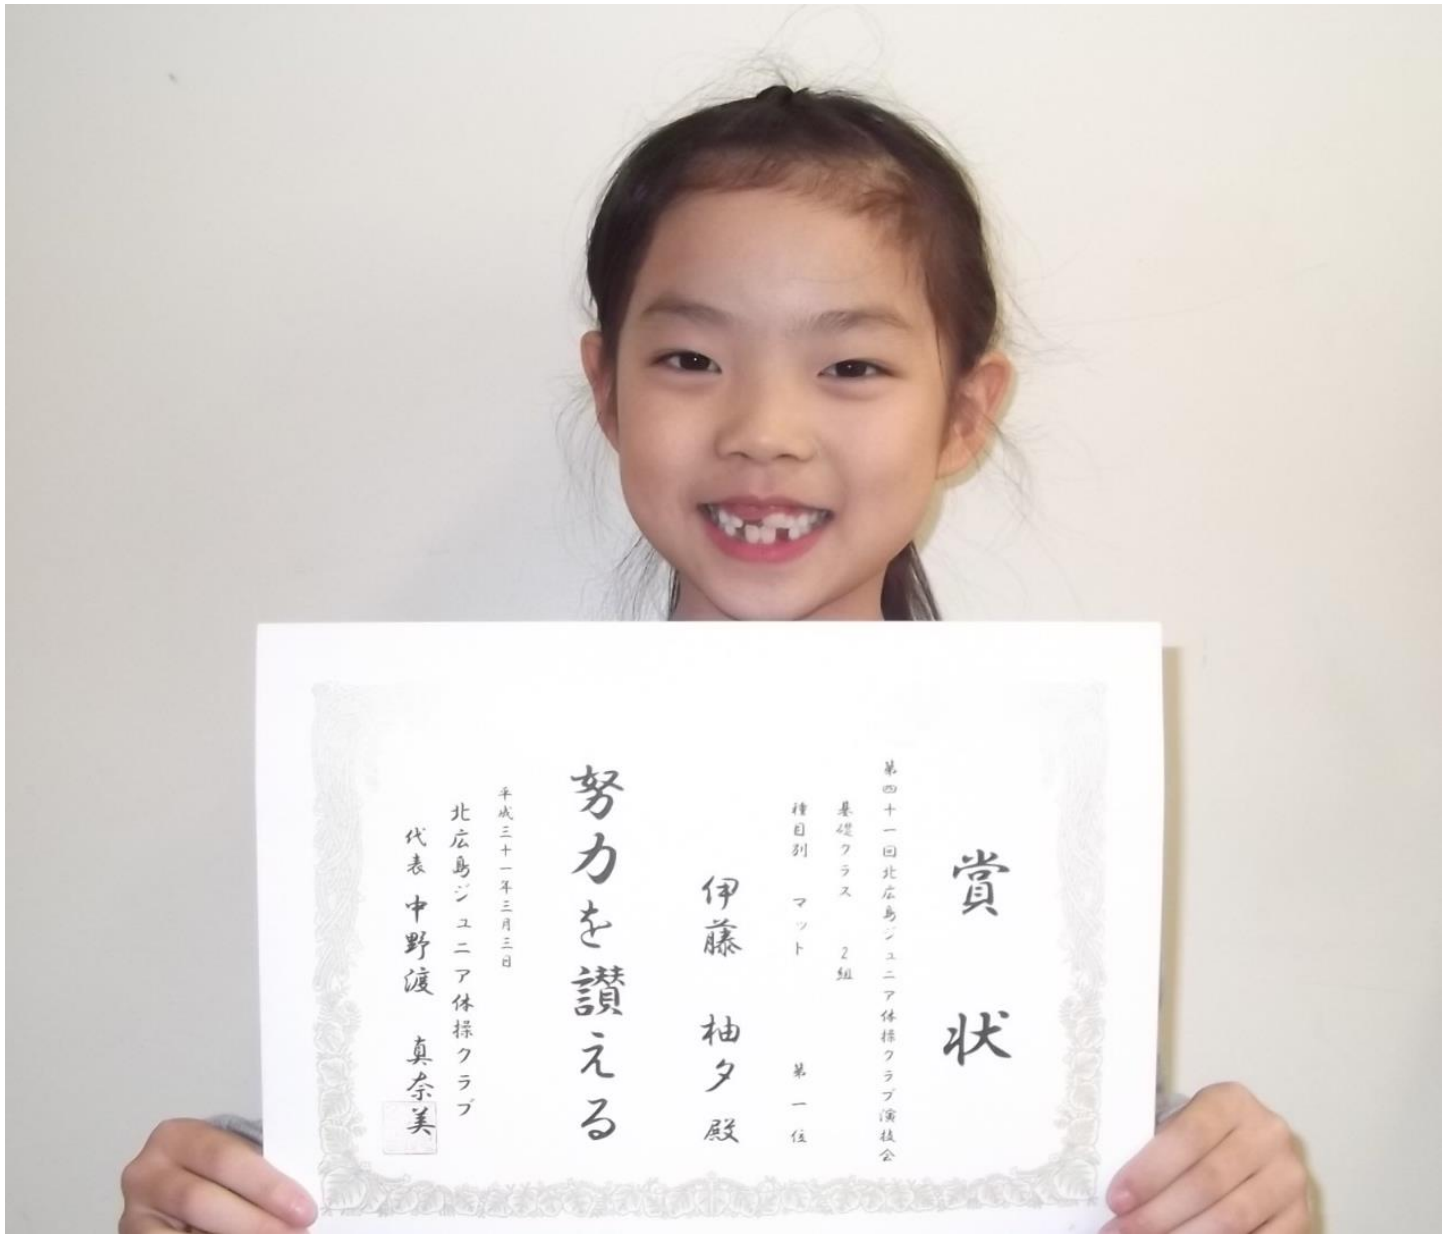 賞状
第四十一回北広島ジュニア体操クラブ演技会
基礎クラス 2組
種目別 マット 第一位
伊藤 柚夕 殿
努力を讃える
平成三十一年三月三日
北広島ジュニア体操クラブ
代表 中野渡 真奈美